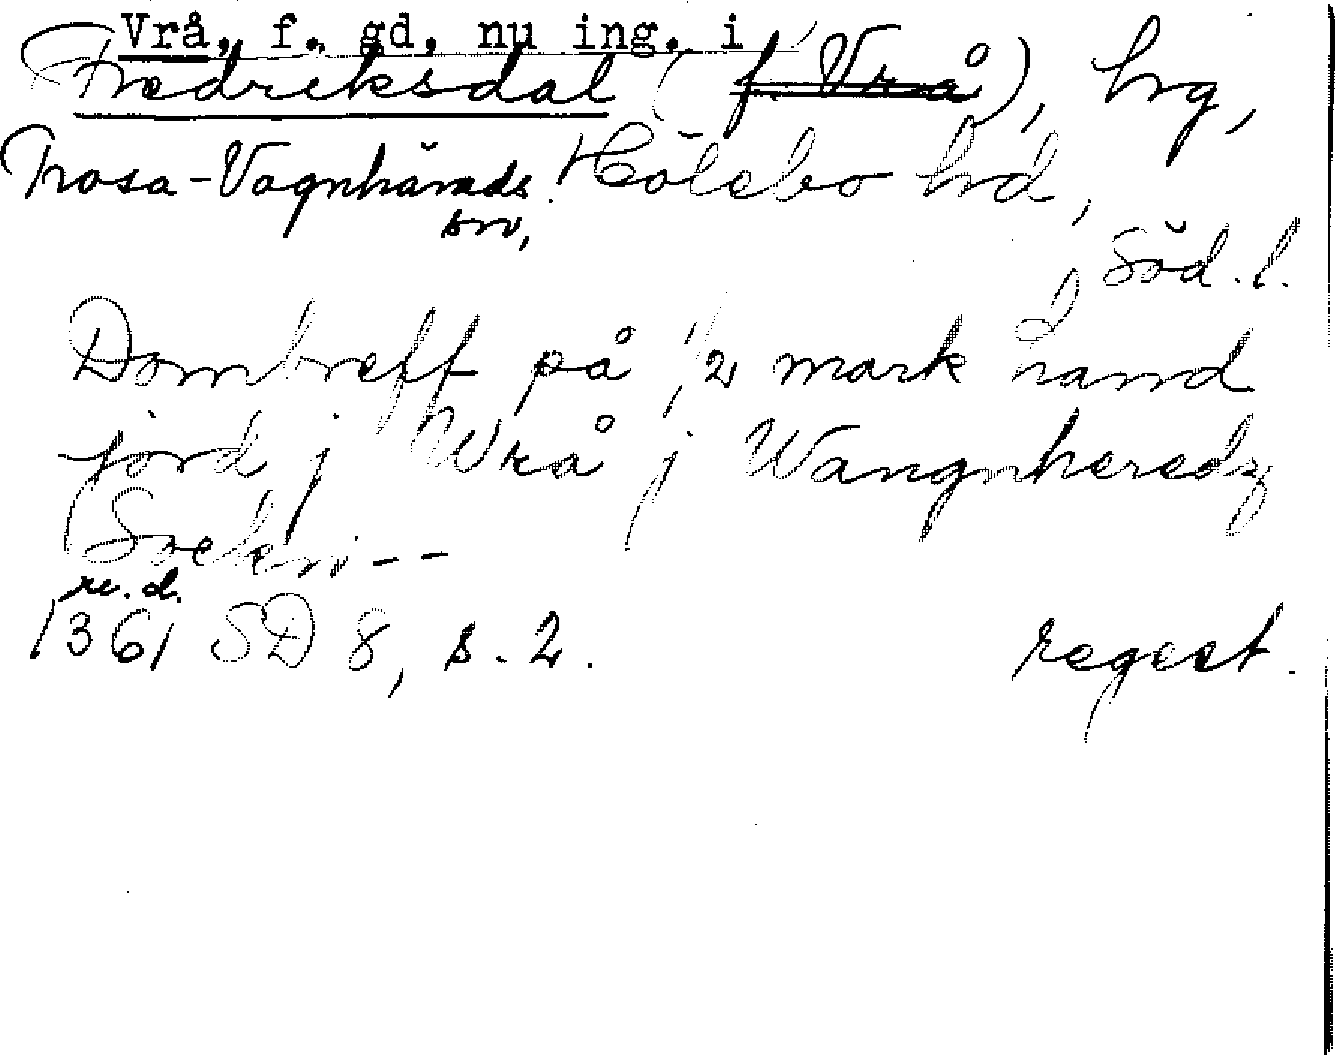 Vrå, f. gd, nu ing. i
Fredriksdal (f. Vrå), hrg,
Trosa-Vagnhärads Hölebo hrd,
sn,
Söd. l.
Dombreff på 1/2 mark land
jord j Wrå j Wangnheredz
Sochn --
u. d.
1361 SD 8, s. 2. regest.